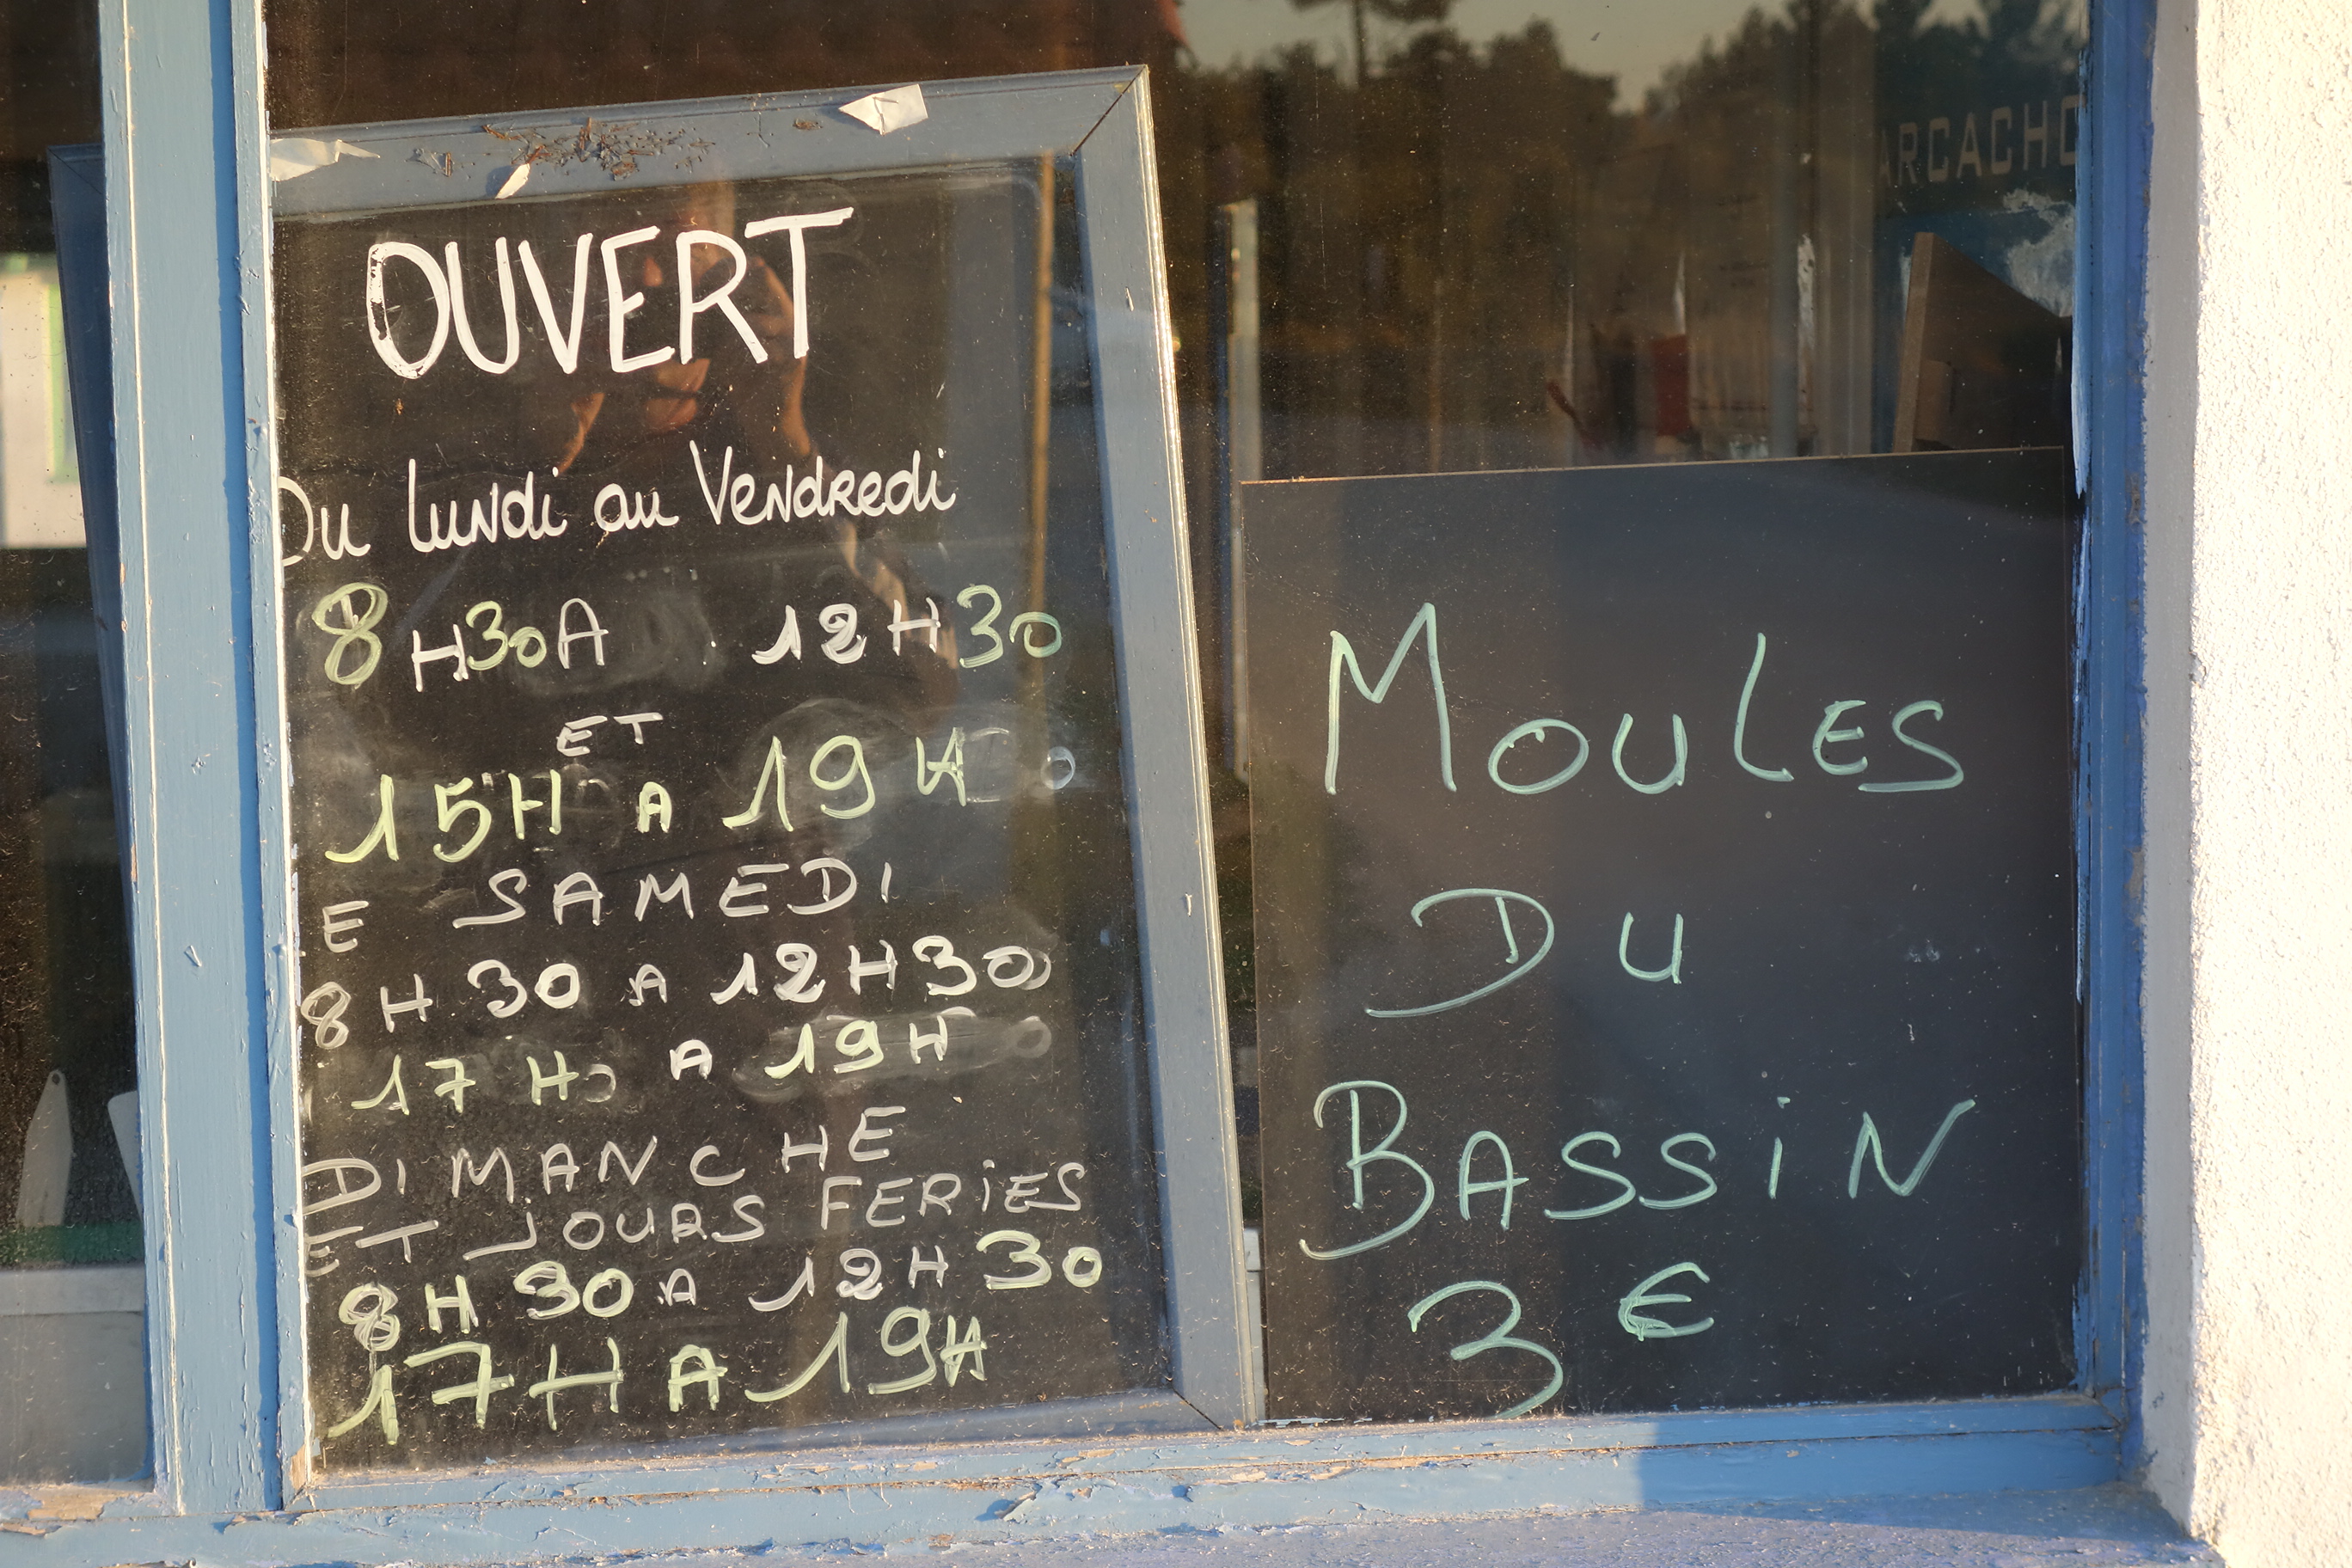 OUVERT
Du Lundi au Vendredi
8H30 A 12H30
ET
15H A 19H
E SAMEDI
8H30 A 12H30
17H A 19H
DIMANCHE
ET JOURS FERIES
8H30 A 12H30
17H A 19H
ARCACHO
MOULES
DU
BASSiN
3€